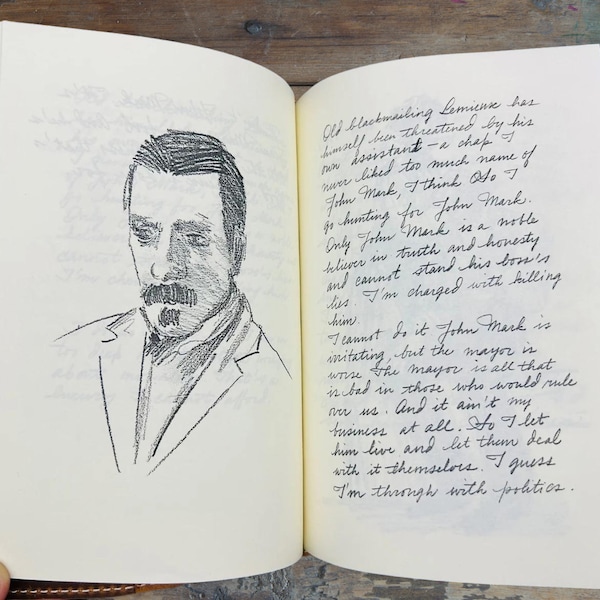 Old blackmailing Lemieux has
himself been threatened by his
own assistant - a chap I
never liked too much name of
John Mark, I think. So I
go hunting for John Mark.
Only John Mark is a noble
believer in truth and honesty
and cannot stand his boss's
lies. I'm charged with killing
him.
I cannot do it John Mark is
irritating, but the mayor is
worse The mayor is all that
is bad in those who would rule
over us. And it ain't my
business at all. So I let
him live and let them deal
with it themselves. I guess
I'm through with politics.